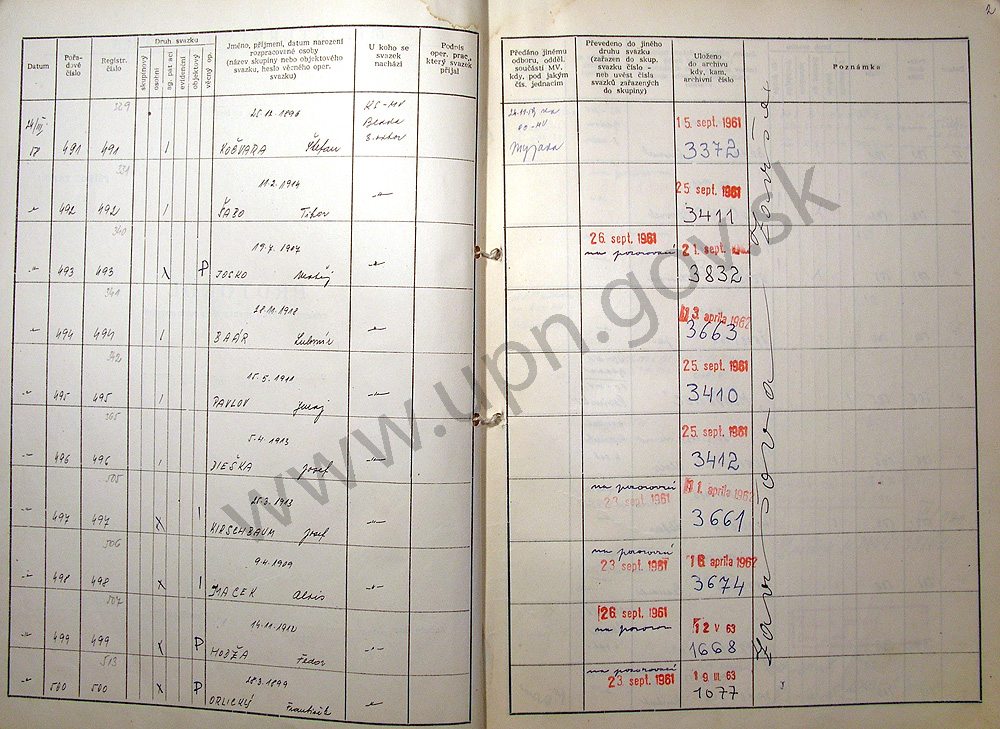 2
Datum
Pořadové číslo
Registr. číslo
Druh svazku
skupinový
osobní
ag. pát. akcí
evidenční
objektový
věcný op.
Jméno, příjmení, datum narození
rozpracované osoby
(název skupiny nebo objektového
svazku, heslo věcného oper.
svazku)
U koho se
svazek
nachází
Podpis
oper. prac.,
který svazek
přijal
Předáno jinému
odboru, odděl.
součásti MV.
kdy, pod jakým
čís. jednacím
Převedeno do jiného
druhu svazku
(zařazen do skup.
svazku číslo -
neb uvést čísla
svazků zařazených
do skupiny)
Uloženo
do archivu
kdy, kam,
archivní číslo
Poznámka
329
24/III.
25.12.1896
KS-MV
491 491 KOŠVARA Štefan
Myjava
15. sept. 1961
3372
331
11.2.1914
492 492 ŠABO Tibor
25 sept. 1961
3411
340
19.4.1907
493 493 x P JOSKO Matěj
26. sept. 1961
na pozorování
21. sept.
3832
341
28.11.1918
494 494 BAÁR Ľubomír
3. apríla 1962
3663
342
15.5.1911
495 495 PAVLOV Juraj
25. sept. 1961
3410
365
5.4.1913
496 496 DIEŠKA Josef
25. sept. 1961
3412
505
25.3.1913
497 497 x I KIRSCHBAUM Josef
na pozorování
23. sept. 1961
1. apríla 1962
3661
506
9.4.1909
498 498 x I MACEK Alexis
na pozorování
23 sept. 1961
16 apríla 1962
3674
507
14.11.1912
499 499 x P HODŽA Fedor
26. sept. 1961
na pozorov
12 V 63
1668
513
18.3.1899
500 500 x P ORLICKÝ František
na pozorování
23. sept. 1961
19 III 63
1077
www.upn.gov.sk